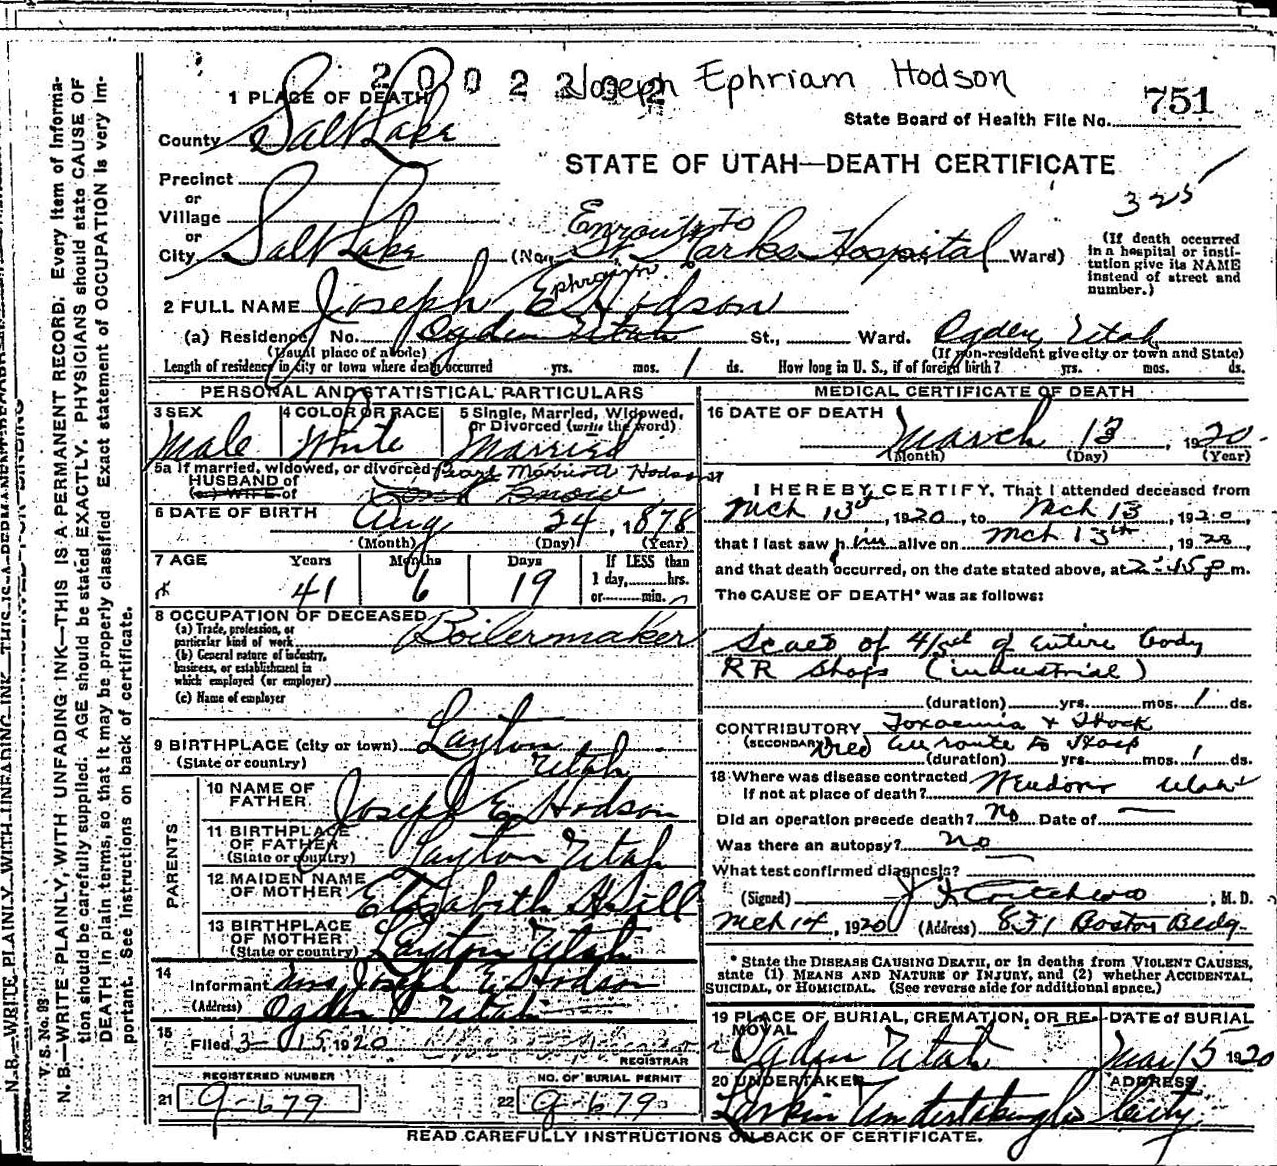 2002292 Joseph Ephriam Hodson
1 PLACE OF DEATH
State Board of Health File No. 751
County Salt Lake
STATE OF UTAH—DEATH CERTIFICATE
325
Precinct
or
Village
or
City Salt Lake (No. Enroute to St Marks Hospital Ward)
(If death occurred in a hospital or institution give its NAME instead of street and number.)
2 FULL NAME Joseph E Hodson
Ephraim
(a) Residence, No. Ogden Utah St., Ward. Ogden, Utah
(Usual place of abode) (If non-resident give city or town and State)
Length of residence in city or town where death occurred yrs. mos. 1 ds. How long in U. S., if of foreign birth? yrs. mos. ds.
PERSONAL AND STATISTICAL PARTICULARS
3 SEX Male
4 COLOR OR RACE White
5 Single, Married, Widowed, or Divorced (write the word) Married
5a If married, widowed, or divorced Pearl Marriott Hodson
HUSBAND of
(or) WIFE of
6 DATE OF BIRTH Aug 24, 1878
(Month) (Day) (Year)
7 AGE Years Months Days If LESS than
41 6 19 1 day, hrs.
or min.
8 OCCUPATION OF DECEASED
(a) Trade, profession, or particular kind of work Boilermaker
(b) General nature of industry, business, or establishment in which employed (or employer)
(c) Name of employer
9 BIRTHPLACE (city or town) Layton
(State or country) Utah
PARENTS
10 NAME OF FATHER Joseph E Hodson
11 BIRTHPLACE OF FATHER (State or country) Layton Utah
12 MAIDEN NAME OF MOTHER Elizabeth Hill
13 BIRTHPLACE OF MOTHER (State or country) Layton Utah
14
Informant Mrs Joseph E Hodson
(Address) Ogden Utah
15
Filed 3-15, 1920
REGISTRAR
REGISTERED NUMBER
21 9-679
NO. OF BURIAL PERMIT
22 9-679
MEDICAL CERTIFICATE OF DEATH
16 DATE OF DEATH
March 13, 1920
(Month) (Day) (Year)
17
I HEREBY CERTIFY, That I attended deceased from
Mch 13th, 1920, to Mch 13, 1920,
that I last saw him alive on Mch 13th, 1920,
and that death occurred, on the date stated above, at 2:45 p m.
The CAUSE OF DEATH* was as follows:
Scald of 4/5 of entire body
RR Shops (industrial)
(duration) yrs. mos. 1 ds.
CONTRIBUTORY Toxaemia & Shock
(SECONDARY) Died en route to Hosp
(duration) yrs. mos. 1 ds.
18 Where was disease contracted
If not at place of death? Utah
Did an operation precede death? No Date of —
Was there an autopsy? no
What test confirmed diagnosis?
(Signed) , M. D.
Mch 14, 1920 (Address) 831 Boston Bldg.
* State the DISEASE CAUSING DEATH, or in deaths from VIOLENT CAUSES, state (1) MEANS AND NATURE OF INJURY, and (2) whether ACCIDENTAL, SUICIDAL, or HOMICIDAL. (See reverse side for additional space.)
19 PLACE OF BURIAL, CREMATION, OR REMOVAL
Ogden Utah
DATE of BURIAL
Mar 15 1920
20 UNDERTAKER
Larkin Undertaking Co
ADDRESS
City
READ CAREFULLY INSTRUCTIONS ON BACK OF CERTIFICATE.
V. S. No. 93
N. B.—WRITE PLAINLY, WITH UNFADING INK—THIS IS A PERMANENT RECORD. Every item of information should be carefully supplied. AGE should be stated EXACTLY. PHYSICIANS should state CAUSE OF DEATH in plain terms, so that it may be properly classified. Exact statement of OCCUPATION is very important. See Instructions on back of certificate.